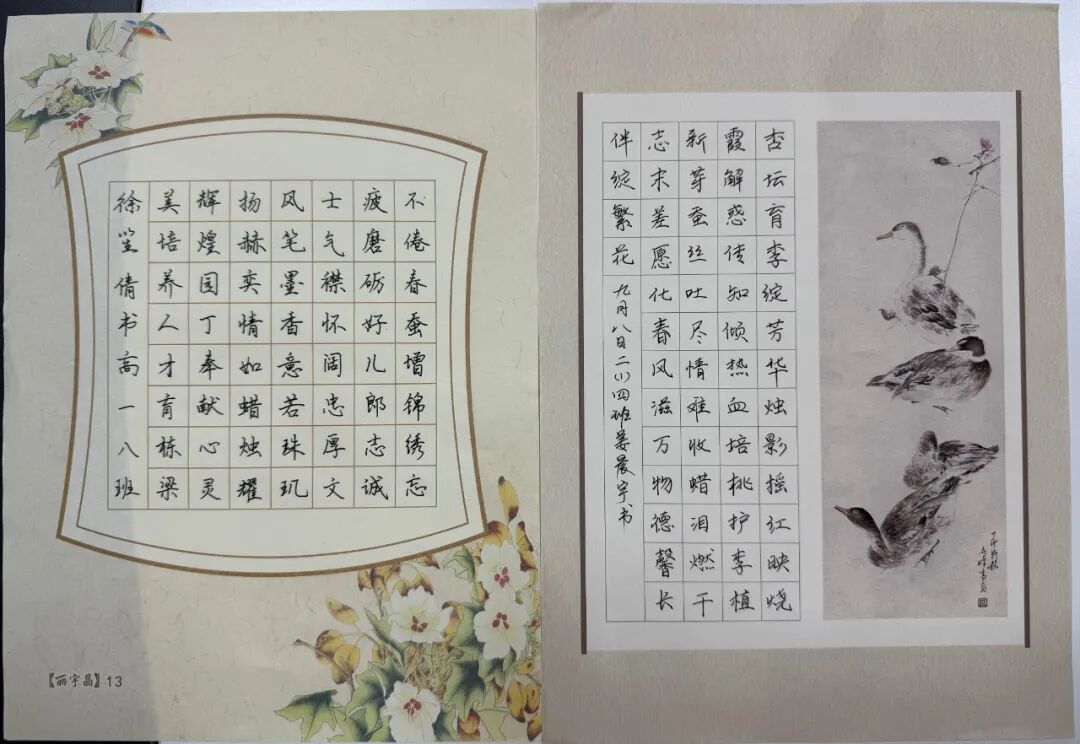 不倦春蚕增锦绣忘
疲磨砺好儿郎志诚
士气襟怀阔忠厚文
风笔墨香意若珠玑
扬赫奕情如蜡烛耀
辉煌园丁奉献心灵
美培养人才育栋梁
徐笙倩书高一八班
【丽宇晶】13
杏坛育李绽芳华烛影摇红映烧
霞解惑传知倾热血培桃护李植
新芽蚕丝吐尽情难收蜡泪燃干
志未差愿化春风滋万物德馨长
伴绽繁花
九月八日二四班姜晨宇书